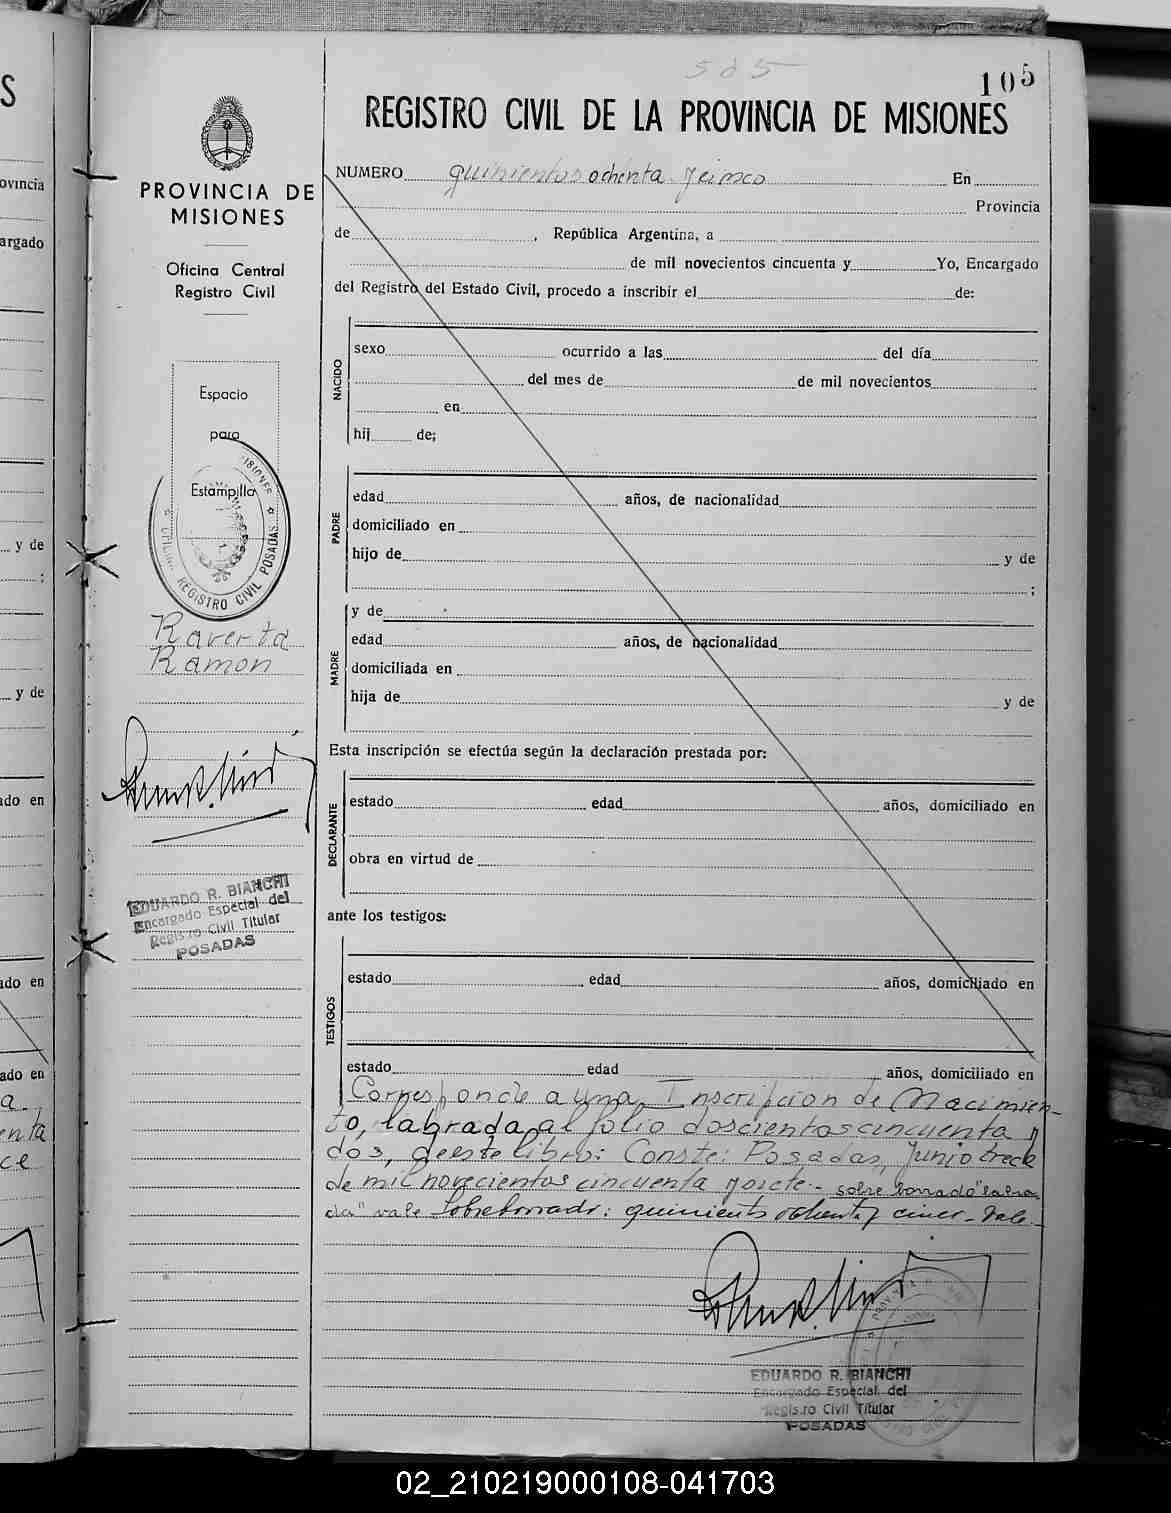 S
ovincia
argado
y de
:
y de
ado en
ado en
ado en
a.
enta
ce
585
105
REGISTRO CIVIL DE LA PROVINCIA DE MISIONES
PROVINCIA DE
MISIONES
Oficina Central
Registro Civil
Espacio
para
Estampilla
REGISTRO CIVIL POSADAS
Raverta
Ramon
EDUARDO R. BIANCHI
Encargado Especial del
Registro Civil Titular
POSADAS
NUMERO quinientos ochenta y cinco En
Provincia
de , República Argentina, a
de mil novecientos cincuenta y Yo, Encargado
del Registro del Estado Civil, procedo a inscribir el de:
NACIDO
sexo ocurrido a las del día
del mes de de mil novecientos
en
hij de;
PADRE
edad años, de nacionalidad
domiciliado en
hijo de y de
;
MADRE
y de
edad años, de nacionalidad
domiciliada en
hija de y de
Esta inscripción se efectúa según la declaración prestada por:
DECLARANTE
estado edad años, domiciliado en
obra en virtud de
ante los testigos:
TESTIGOS
estado edad años, domiciliado en
estado edad años, domiciliado en
Corresponde a una Inscripcion de Nacimien-
to, labrada al folio doscientos cincuenta y
dos, de este libro: Conste: Posadas, Junio trece
de mil novecientos cincuenta y siete.- sobre borrado "labra
da" vale Sobreborrado: quinientos ochenta y cinco - Vale.-
EDUARDO R. BIANCHI
Encargado Especial del
Registro Civil Titular
POSADAS
02_210219000108-041703